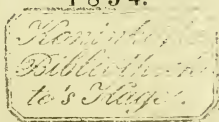 1894.
Koninkl.
Bibliotheek
te's Hage.